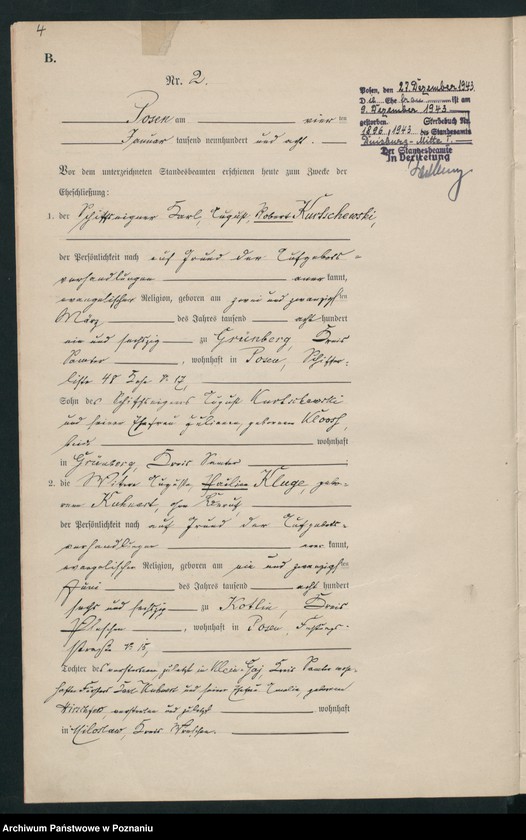 4
B.
Nr. 2.
Posen am vier ten
Januar tausend neunhundert und acht.
Vor dem unterzeichneten Standesbeamten erschienen heute zum Zwecke der
Eheschließung:
1. der Schiffseigner Karl, August, Robert Kurtschewski,
der Persönlichkeit nach auf Grund der Aufgebots-
verhandlungen anerkannt,
evangelischer Religion, geboren am zwei und zwanzigsten
März des Jahres tausend acht hundert
ein und sechzig zu Grünberg, Kreis
Samter, wohnhaft in Posen, Schiffer-
liste
Sohn des Schiffseigners August Kurtschewski
und seiner Ehefrau Juliane, geborenen
wohnhaft
in Grünberg, Kreis Samter
2. die Witwe Auguste, Pauline Kluge, gebo-
rene Kuhnert, ohne Beruf
der Persönlichkeit nach auf Grund der Aufgebots-
verhandlungen anerkannt,
evangelischer Religion, geboren am ein und zwanzigsten
Juni des Jahres tausend acht hundert
sechs und sechzig zu Kotlin, Kreis
Pleschen, wohnhaft in Posen, Festungs-
straße
Tochter des verstorbenen zuletzt in Klein-Gaj, Kreis Samter wohn-
haften Försters Karl Kuhnert und seiner Ehefrau Amalie, geborenen
verstorben und zuletzt wohnhaft
in Miloslaw, Kreis Wreschen.
Posen, den 27. Dezember 1943
D ie Ehefrau ist am
9. Dezember 1943
gestorben. Sterbebuch Nr.
1896/1943 des Standesamts
Duisburg-Mitte
Der Standesbeamte
In Vertretung
Archiwum Państwowe w Poznaniu
szukajwarchiwach.gov.pl